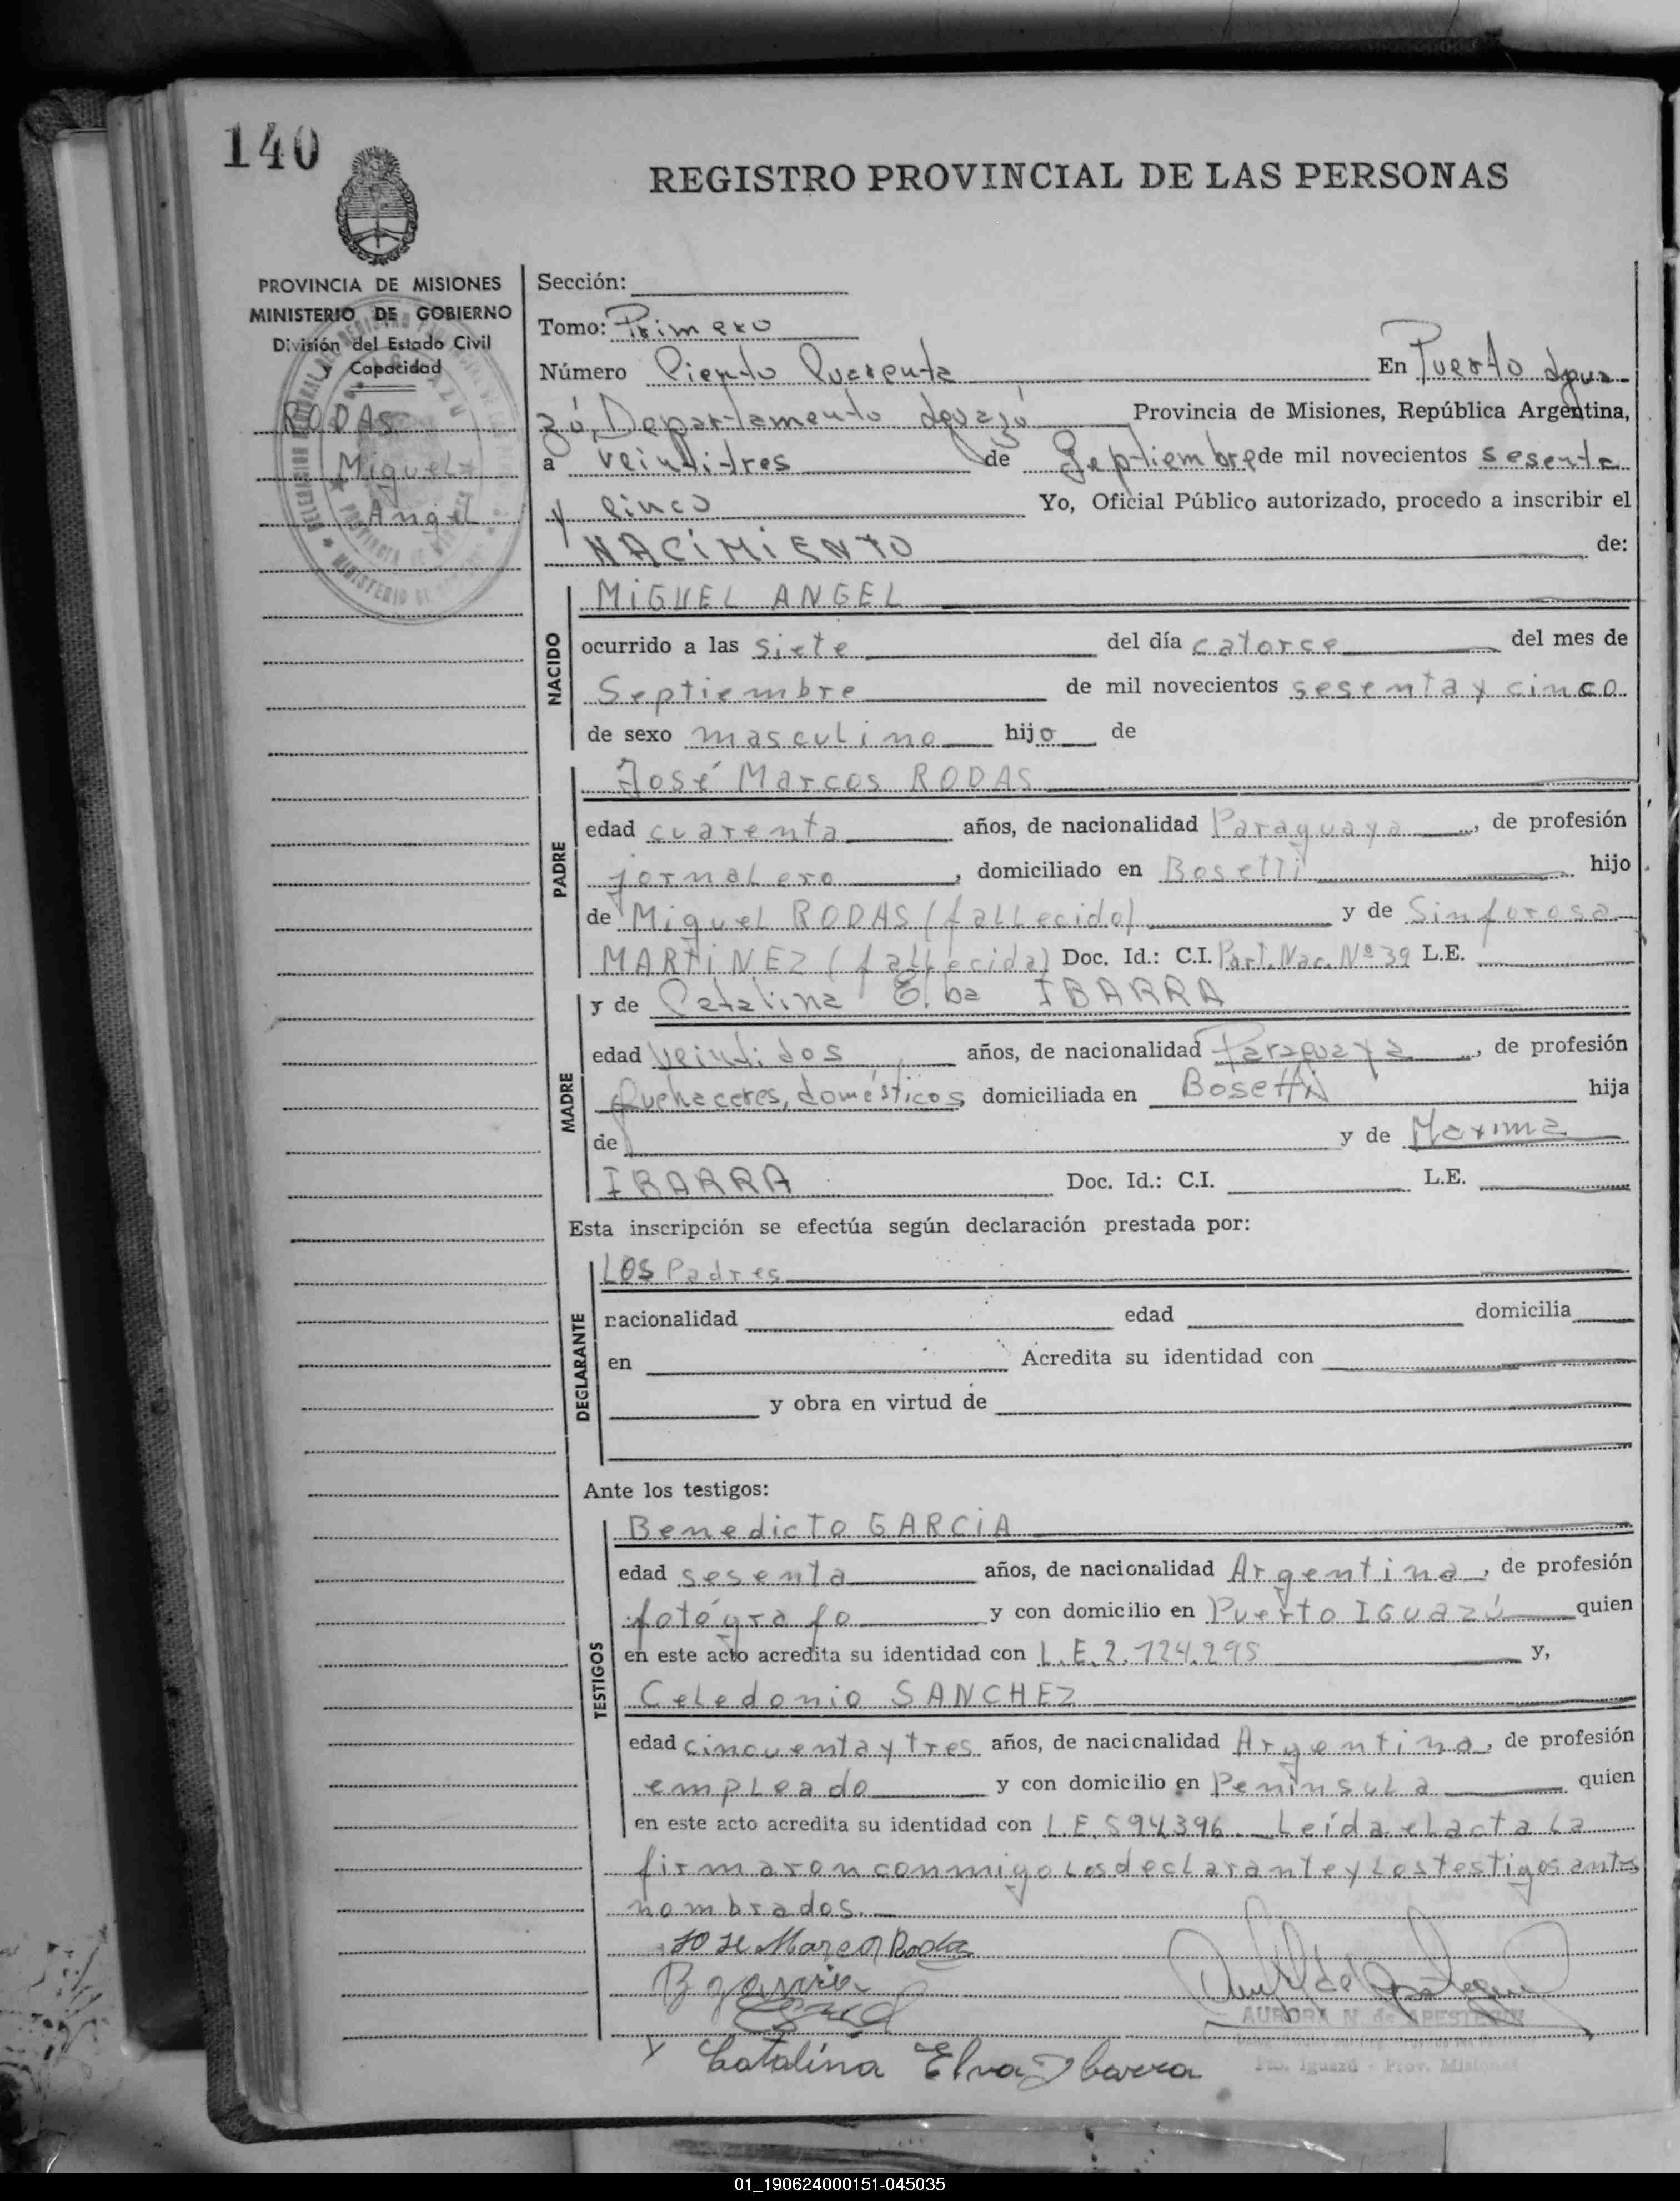 140
REGISTRO PROVINCIAL DE LAS PERSONAS
PROVINCIA DE MISIONES
MINISTERIO DE GOBIERNO
División del Estado Civil
y Capacidad
RODAS
Miguel
Angel
Sección:
Tomo: Primero
Número Ciento Cuarenta En Puerto Igua-
zú, Departamento Iguazú Provincia de Misiones, República Argentina,
a veintitres de Septiembre de mil novecientos sesenta
y Cinco Yo, Oficial Público autorizado, procedo a inscribir el
NACIMIENTO de:
NACIDO
MIGUEL ANGEL
ocurrido a las siete del día catorce del mes de
Septiembre de mil novecientos sesenta y cinco
de sexo masculino hijo de
PADRE
José Marcos RODAS
edad cuarenta años, de nacionalidad Paraguaya, de profesión
jornalero, domiciliado en Bosetti hijo
de Miguel RODAS (fallecido) y de Sinforosa
MARTINEZ (fallecida) Doc. Id.: C.I. Part. Nac. Nº 39 L.E.
MADRE
y de Catalina Elba IBARRA
edad veintidos años, de nacionalidad Paraguaya, de profesión
Quehaceres, domésticos, domiciliada en Bosetti hija
de y de Maxima
IBARRA Doc. Id.: C.I. L.E.
Esta inscripción se efectúa según declaración prestada por:
DECLARANTE
Los Padres
nacionalidad edad domicilia
en Acredita su identidad con
y obra en virtud de
Ante los testigos:
TESTIGOS
Benedicto GARCIA
edad sesenta años, de nacionalidad Argentina, de profesión
fotógrafo y con domicilio en Puerto IGuazú quien
en este acto acredita su identidad con L.E.2.724.295 y,
Celedonio SANCHEZ
edad cincuenta y tres años, de nacionalidad Argentina, de profesión
empleado y con domicilio en Península quien
en este acto acredita su identidad con L.E.594396. Leída el acta la
firmaron conmigo los declarante y los testigos antes
nombrados.
Jose Marcos Rodas
B garcia
AURORA N. de APESTEGUI
Pto. Iguazú - Prov. Misiones
y Catalina Elva Ibarra
01_190624000151-045035